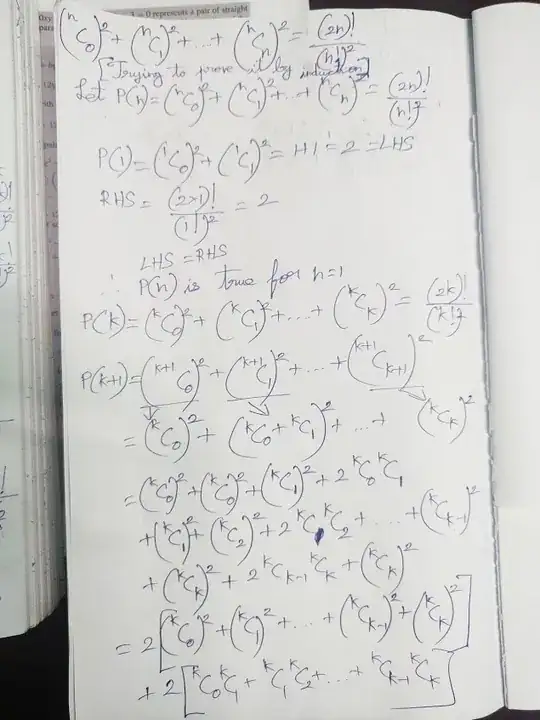 = 0 represents a pair of straight
(ⁿC₀)² + (ⁿC₁)² + ... + (ⁿCₙ)² = (2n)!/(n!)²
[Trying to prove it by induction]
Let P(n) = (ⁿC₀)² + (ⁿC₁)² + ... + (ⁿCₙ)² = (2n)!/(n!)²
P(1) = (¹C₀)² + (¹C₁)² = 1+1 = 2 = LHS
RHS = (2×1)!/(1!)² = 2
LHS = RHS
∴ P(n) is true for n=1
P(k) = (ᵏC₀)² + (ᵏC₁)² + ... + (ᵏCₖ)² = (2k)!/(k!)²
P(k+1) = (ᵏ⁺¹C₀)² + (ᵏ⁺¹C₁)² + ... + (ᵏ⁺¹Cₖ₊₁)²
= (ᵏC₀)² + (ᵏC₀ + ᵏC₁)² + ... + (ᵏCₖ)²
= (ᵏC₀)² + (ᵏC₀)² + (ᵏC₁)² + 2 ᵏC₀ ᵏC₁
+ (ᵏC₁)² + (ᵏC₂)² + 2 ᵏC₁ ᵏC₂ + ... + (ᵏCₖ₋₁)²
+ (ᵏCₖ)² + 2 ᵏCₖ₋₁ ᵏCₖ + (ᵏCₖ)²
= 2[(ᵏC₀)² + (ᵏC₁)² + ... + (ᵏCₖ₋₁)² + (ᵏCₖ)²]
+ 2[ᵏC₀ ᵏC₁ + ᵏC₁ ᵏC₂ + ... + ᵏCₖ₋₁ ᵏCₖ]